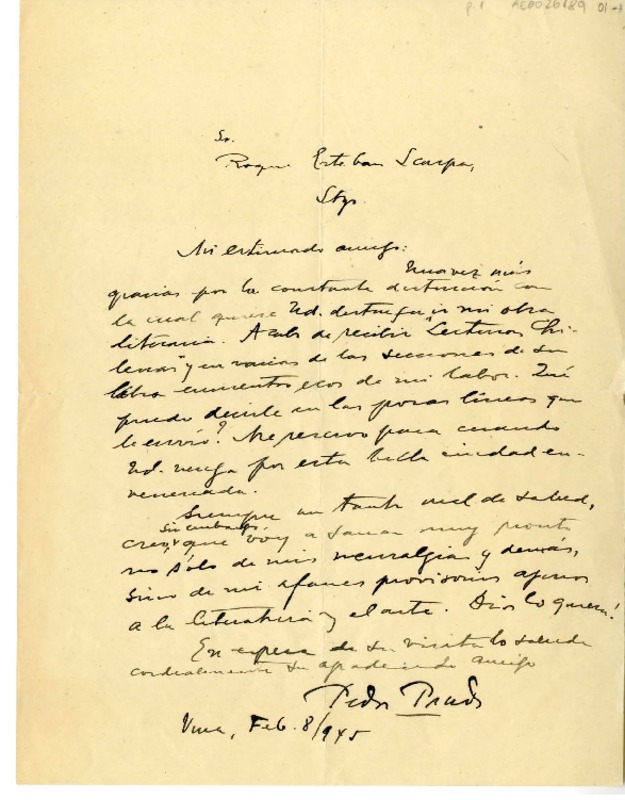 p. 1 AE0026189
Sr.
Roque Esteban Scarpa,
Stgo.
Mi estimado amigo:
Una vez más
gracias por la constante distinción con
la cual quiere Ud. distinguir mi obra
literaria. Acabo de recibir "Lecturas Chi-
lenas" y en varias de las secciones de su
libro encuentros ecos de mi labor. Qué
puedo decirle en las pocas líneas que
le envío? Me reservo para cuando
Ud. venga por esta bella ciudad en-
venenada.
Siempre un tanto mal de salud,
sin embargo,
creo, que voy a sanar muy pronto
no sólo de mis neuralgias y demás,
sino de mi afanes provisorios ajenos
a la literatura y el arte. Dios lo quiera!
En espera de su visita lo saluda
cordialmente su agradecido amigo
Pedro Prado
Viña, Feb. 8/945